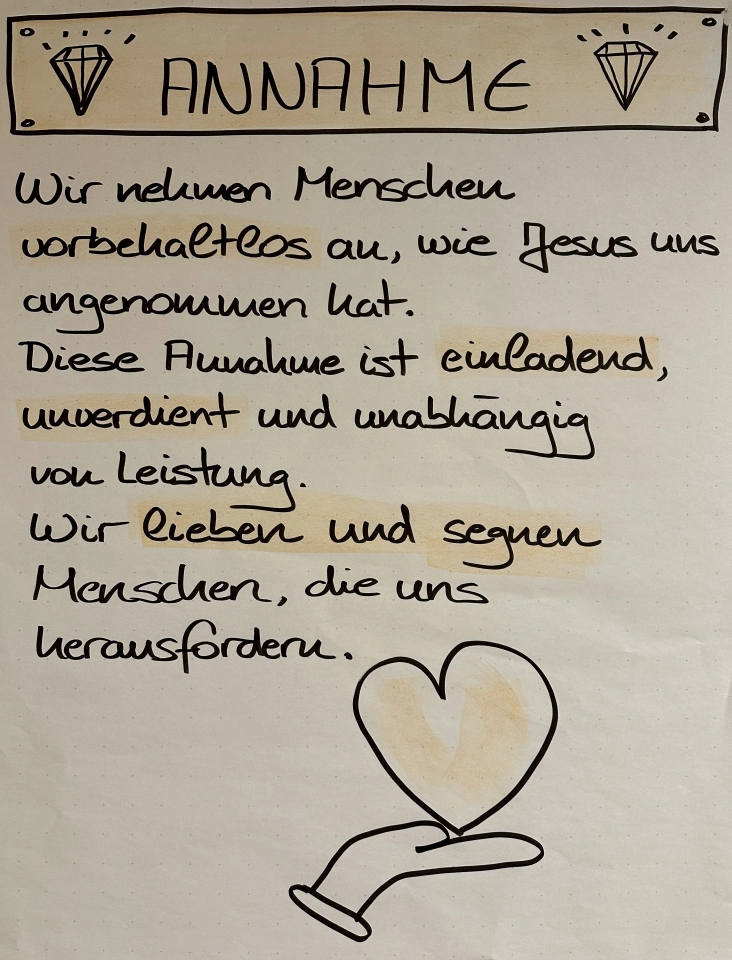 ANNAHME
Wir nehmen Menschen
vorbehaltlos an, wie Jesus uns
angenommen hat.
Diese Annahme ist einladend,
unverdient und unabhängig
von Leistung.
Wir lieben und segnen
Menschen, die uns
herausfordern.